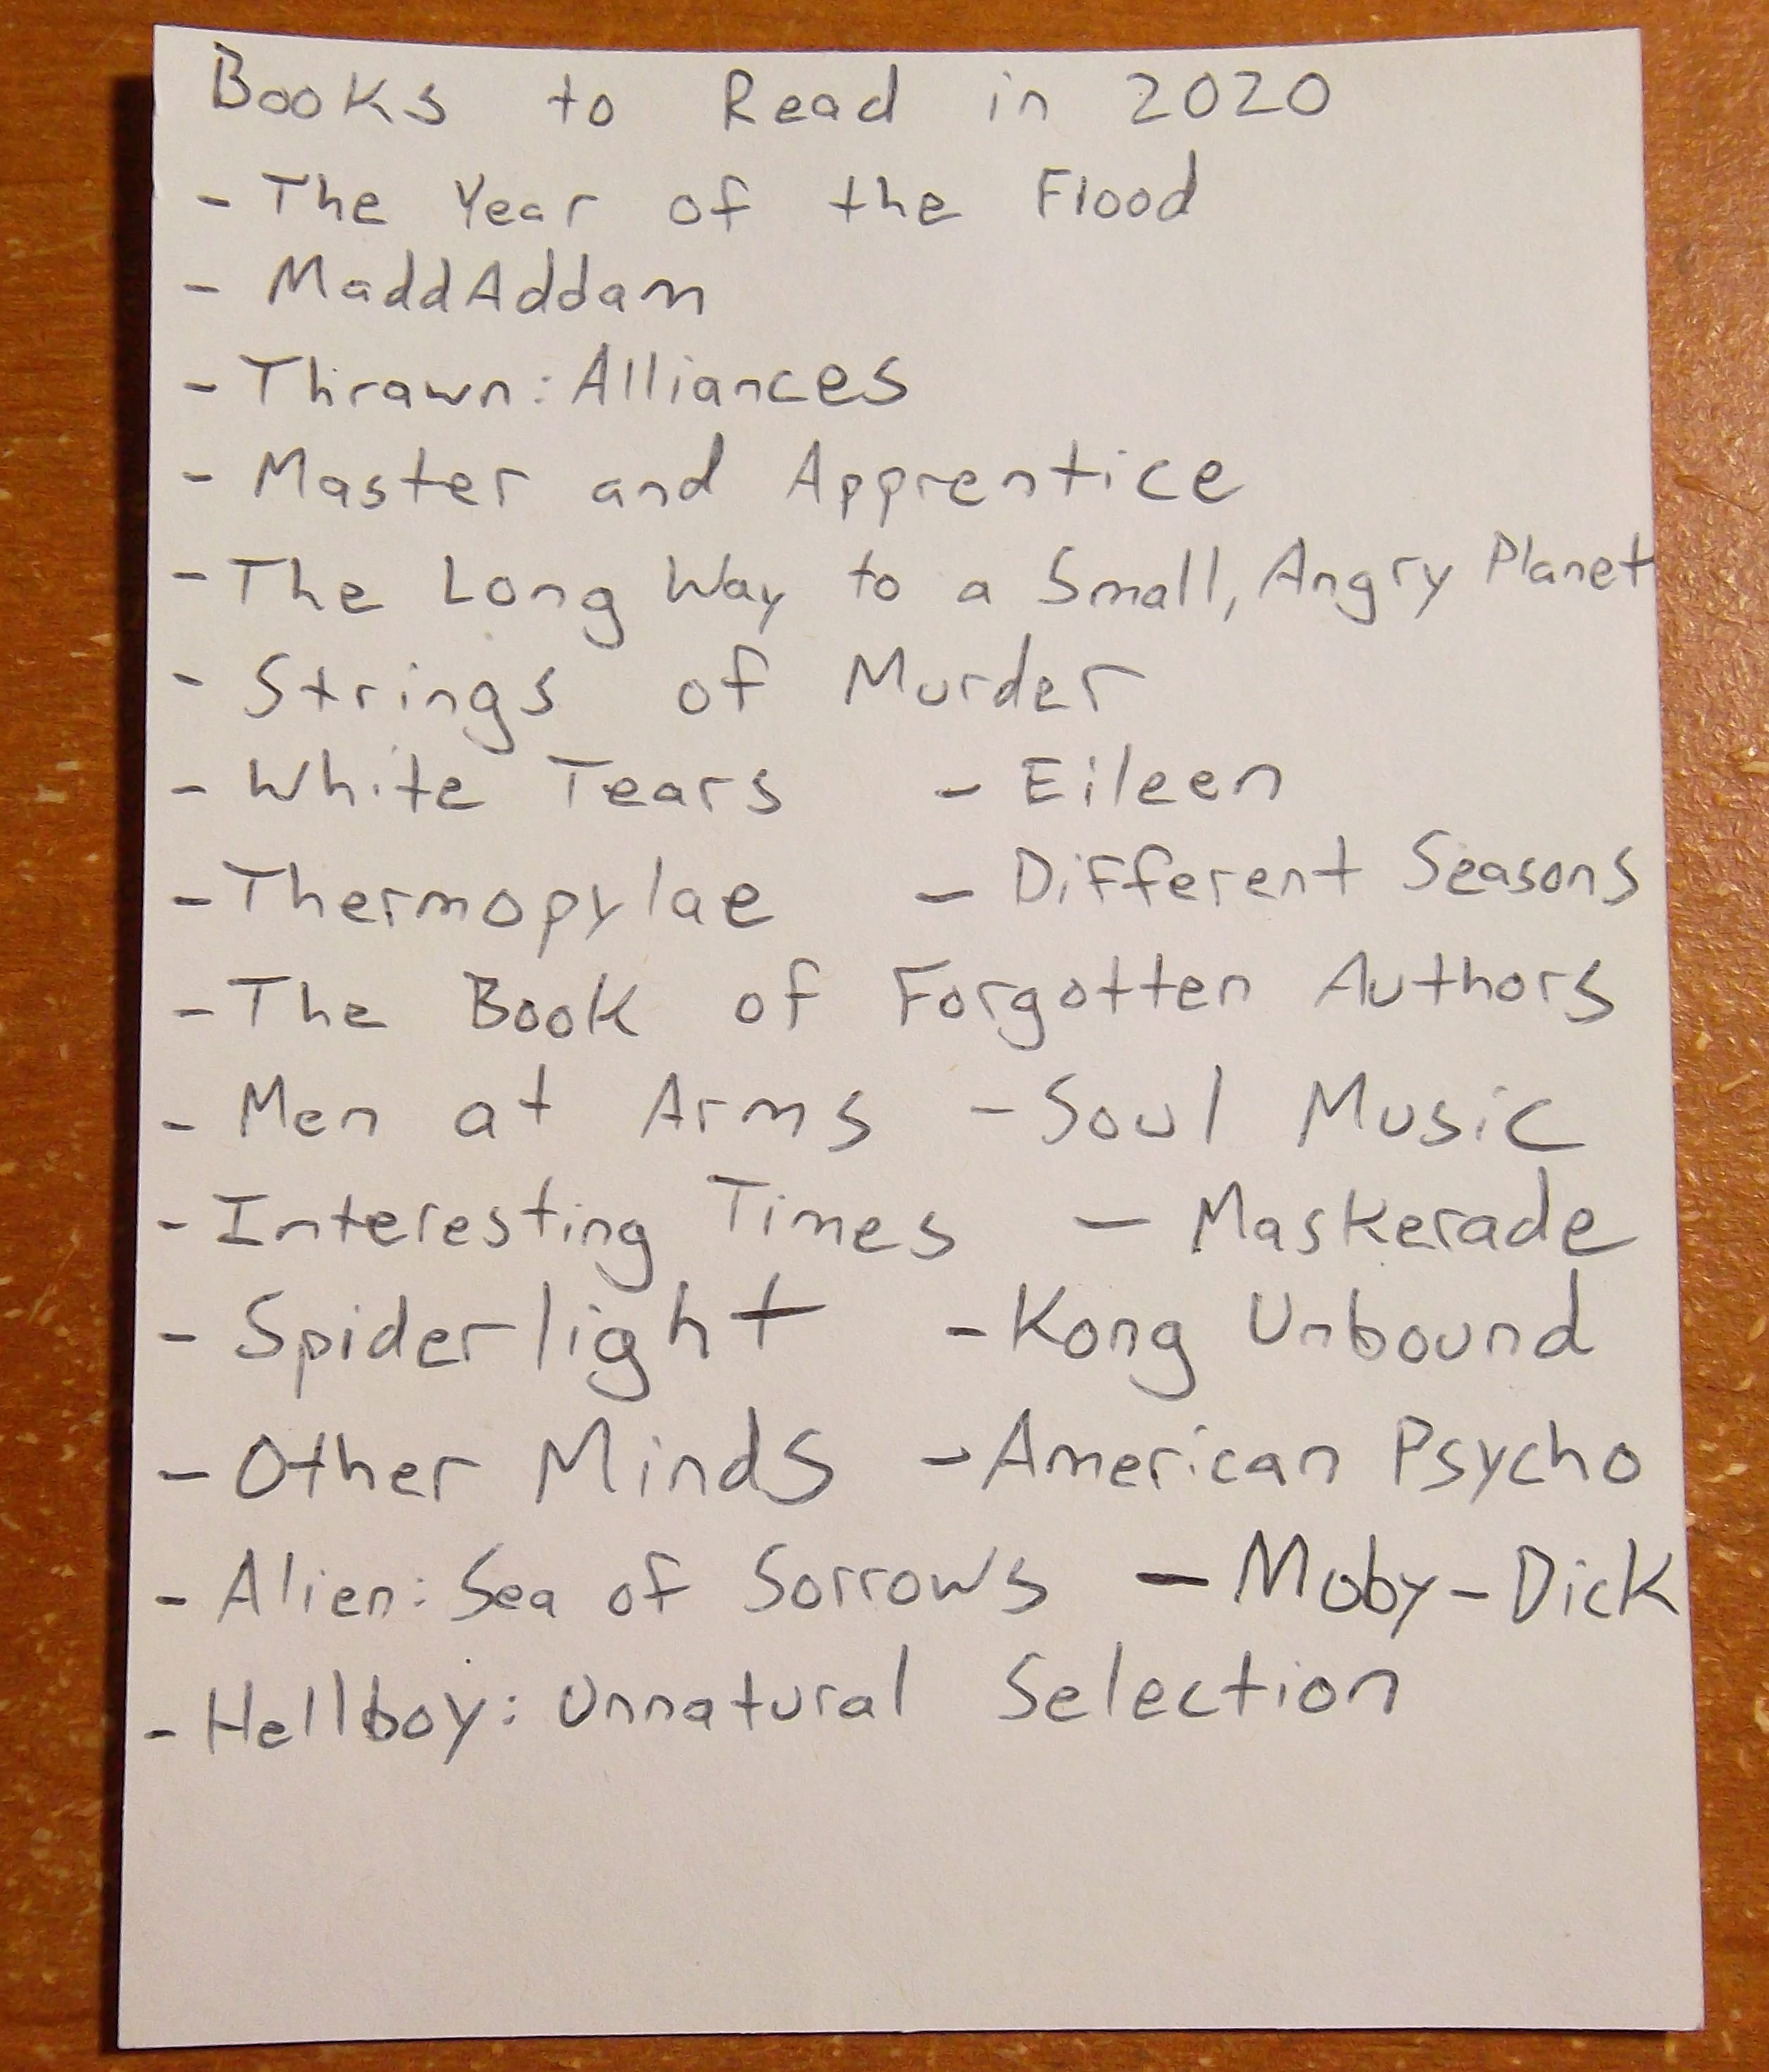 Books to Read in 2020
- The Year of the Flood
- MaddAddam
- Thrawn: Alliances
- Master and Apprentice
- The Long Way to a Small, Angry Planet
- Strings of Murder
- White Tears - Eileen
- Thermopylae - Different Seasons
- The Book of Forgotten Authors
- Men at Arms - Soul Music
- Interesting Times - Maskerade
- Spiderlight - Kong Unbound
- Other Minds - American Psycho
- Alien: Sea of Sorrows - Moby-Dick
- Hellboy: Unnatural Selection